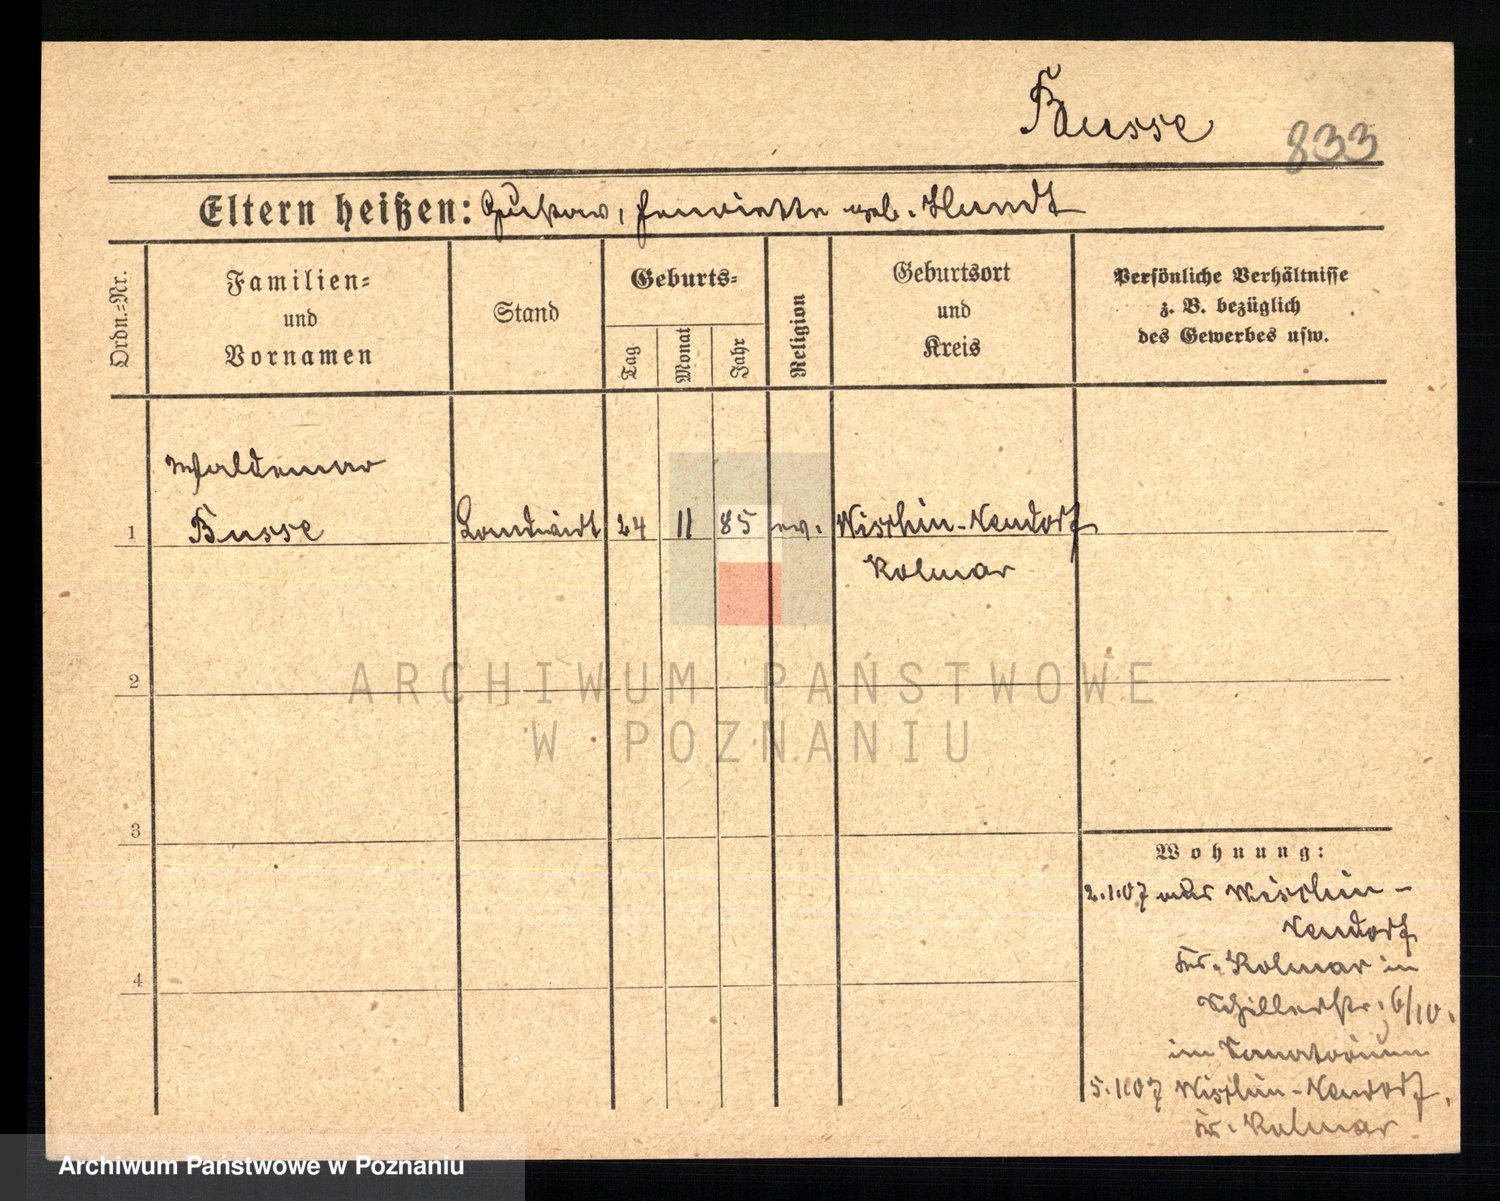 Busse
833
Eltern heißen: Gustav, Henriette geb. Hundt
Ordn.-Nr.
Familien-
und
Vornamen
Stand
Geburts-
Tag
Monat
Jahr
Religion
Geburtsort
und
Kreis
Persönliche Verhältnisse
z. B. bezüglich
des Gewerbes usw.
Waldemar
1 Busse Landwirt 24 11 85 ev. Wischin-Neudorf
Kolmar
2
3
4
Wohnung:
2.1.07 aus Wischin-
Neudorf
Kr. Kolmar in
Schillerstr. 6/10.
im Sanatorium
5.1.07 Wischin-Neudorf,
Kr. Kolmar
ARCHIWUM PAŃSTWOWE
W POZNANIU
Archiwum Państwowe w Poznaniu